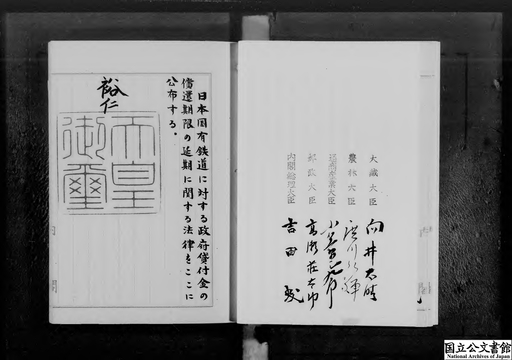 大蔵大臣 向井忠晴
農林大臣 廣川弘禅
通商産業大臣 小笠原三九郎
郵政大臣 高瀬荘太郎
内閣総理大臣 吉田茂
日本国有鉄道に対する政府貸付金の
償還期限の延期に関する法律をここに
公布する。
裕仁
天皇
御璽
国立公文書館
National Archives of Japan